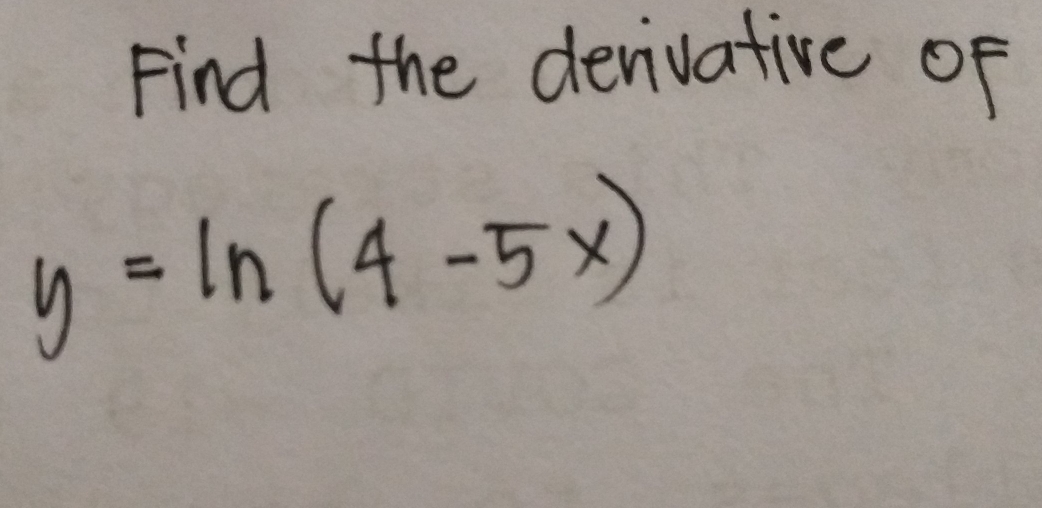 Find the derivative of
y = ln (4 -5x)